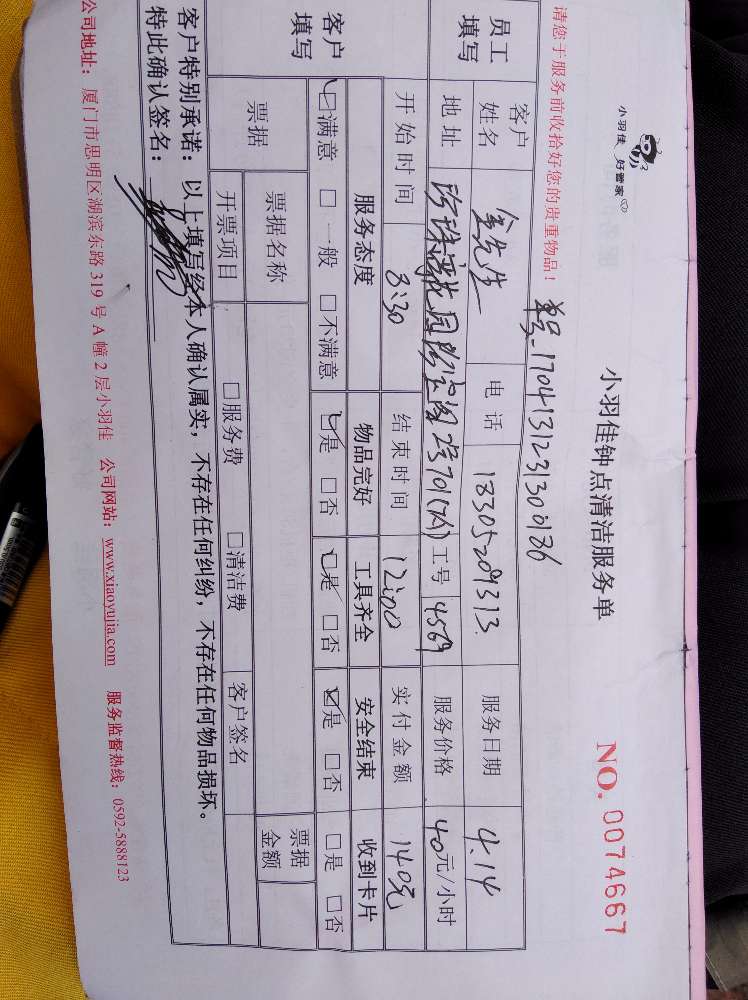 小羽佳 好管家
小羽佳钟点清洁服务单
NO. 0074667
请您于服务前收拾好您的贵重物品!
单号_170413123130086
员工填写
客户姓名 金先生 电话 18305209313 服务日期 4.14
地址 工号 4569 服务价格 40元/小时
客户填写
开始时间 8:30 结束时间 12:00 实付金额 140元
服务态度 物品完好 工具齐全 安全结束 收到卡片
☑满意 □一般 □不满意 ☑是 □否 ☑是 □否 ☑是 □否 □是 □否
票据 票据名称 票据金额
开票项目 □服务费 □清洁费 客户签名
客户特别承诺:以上填写经本人确认属实,不存在任何纠纷,不存在任何物品损坏。
特此确认签名:
公司地址:厦门市思明区湖滨东路 319 号 A 幢 2 层小羽佳 公司网站:www.xiaoyujia.com 服务监督热线:0592-5888123